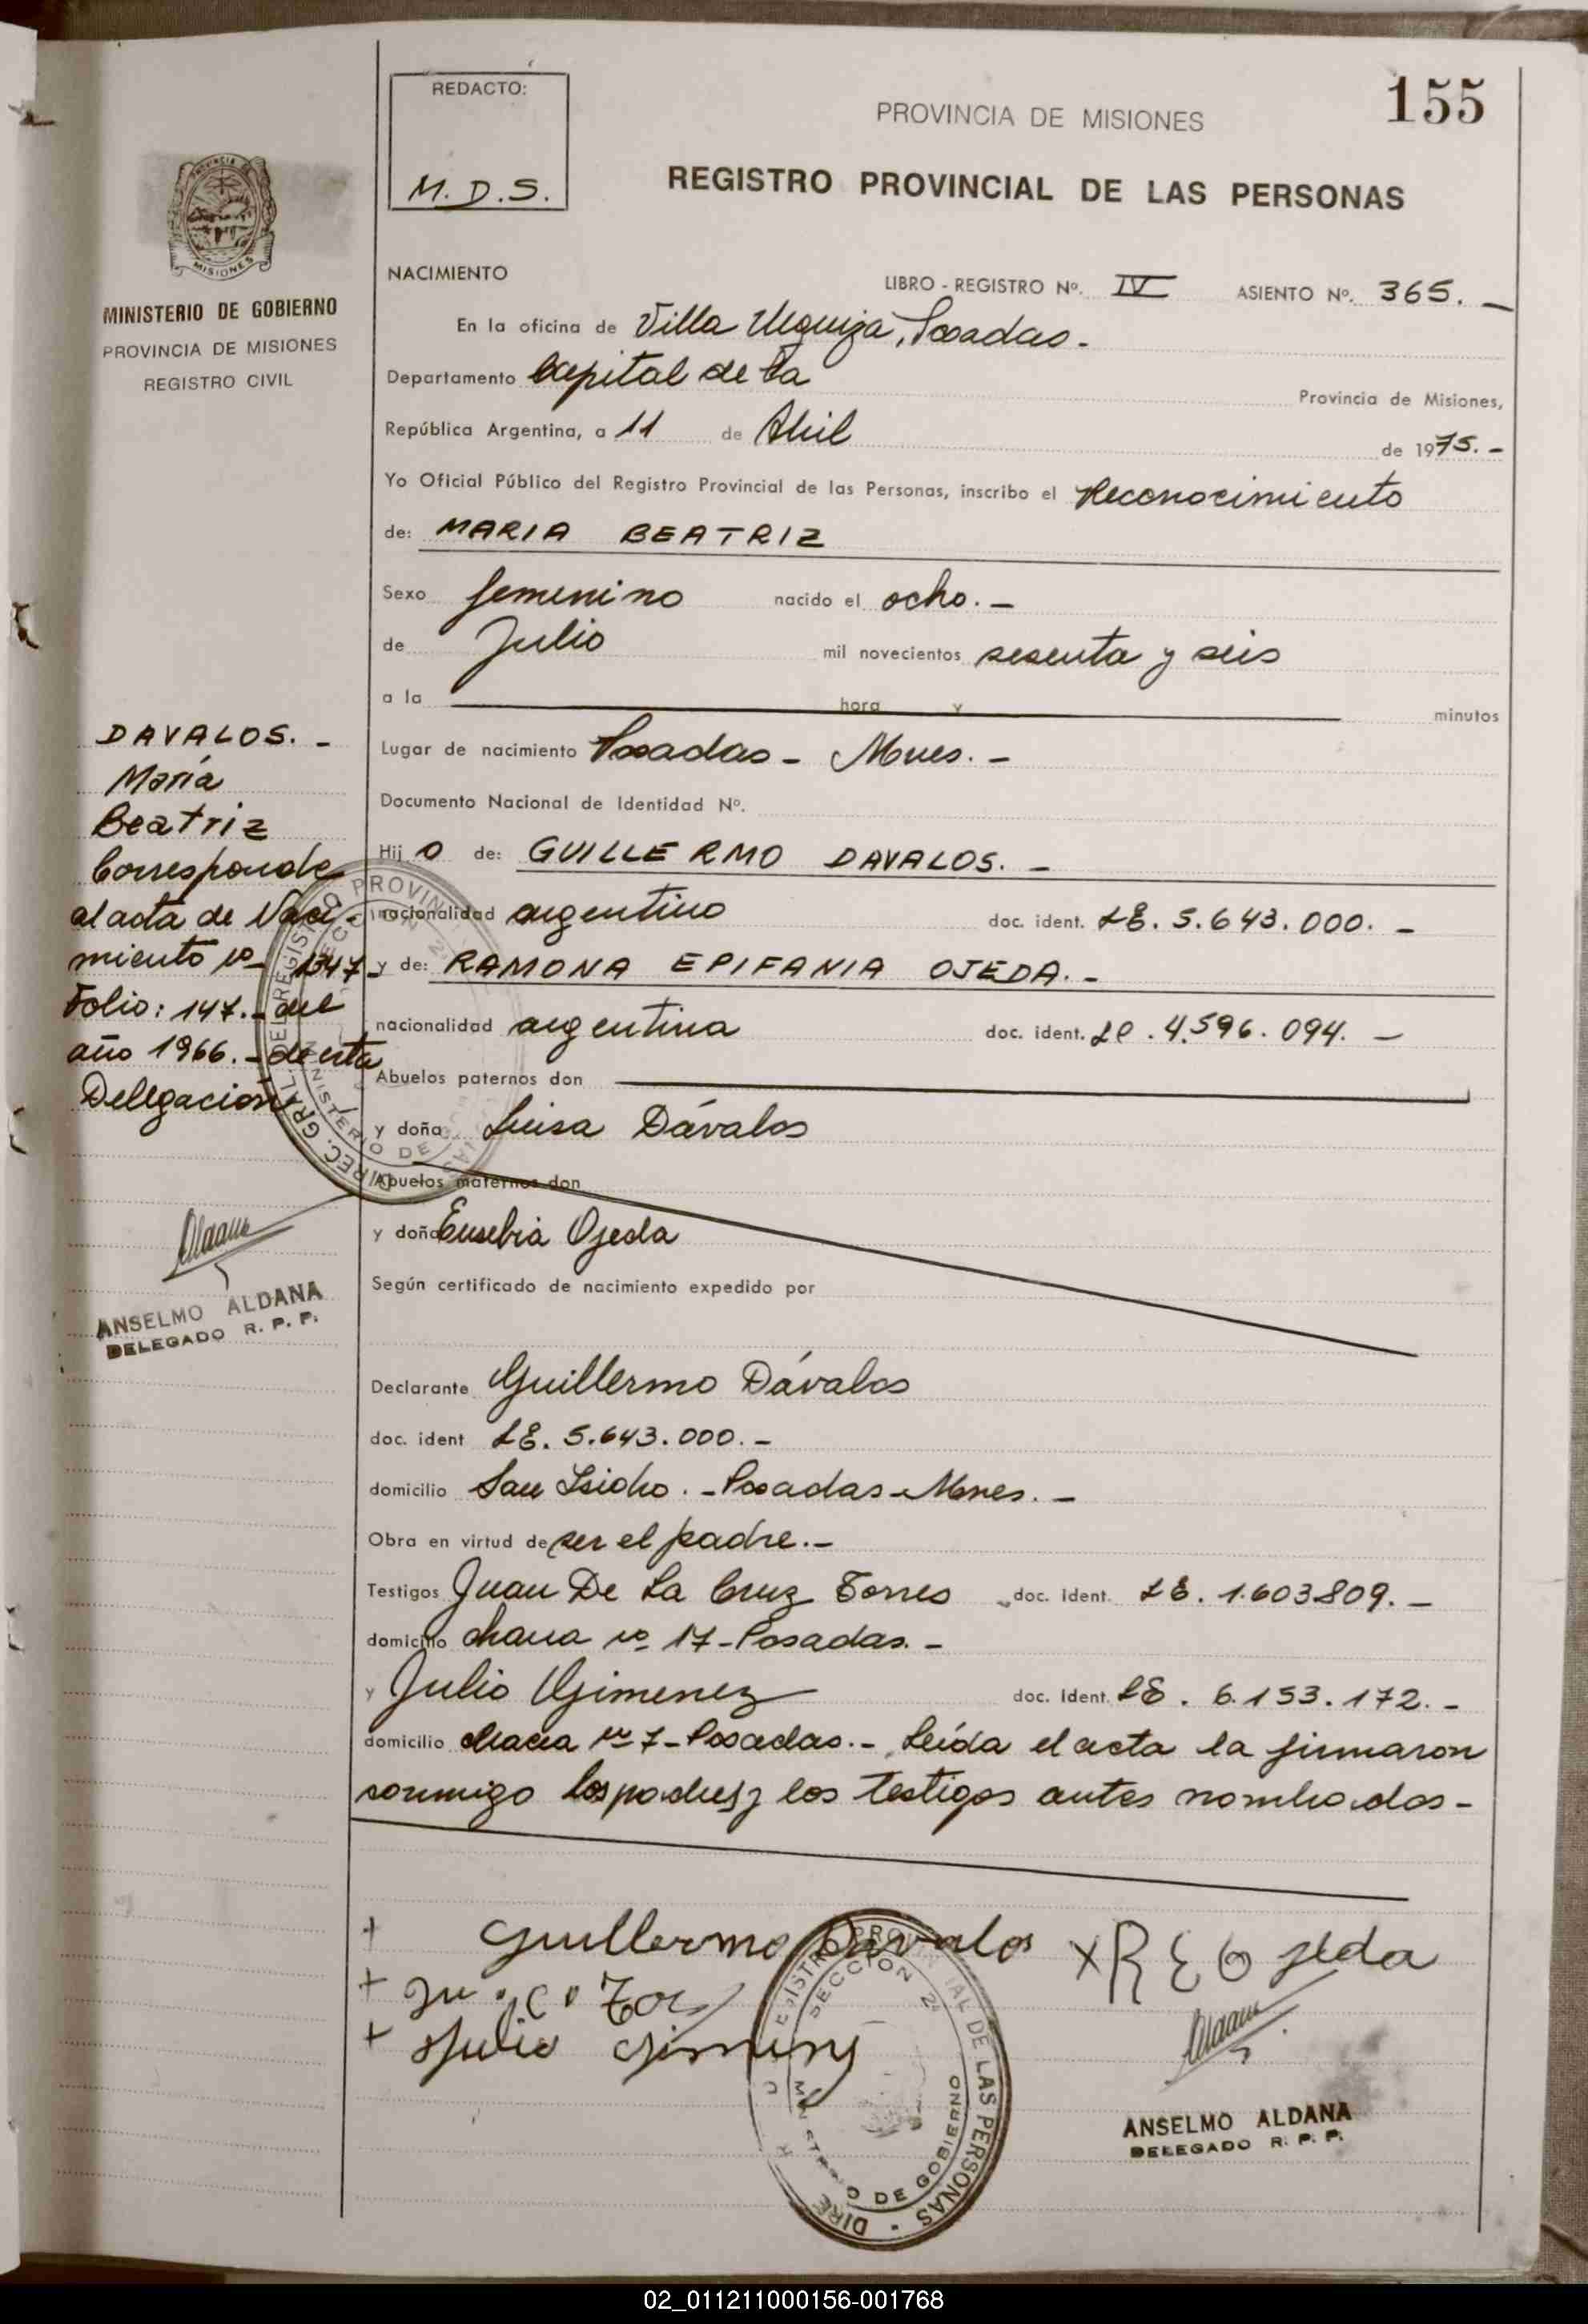 155
REDACTO:
M.D.S.
PROVINCIA DE MISIONES
REGISTRO PROVINCIAL DE LAS PERSONAS
PROVINCIA DE MISIONES
MINISTERIO DE GOBIERNO
PROVINCIA DE MISIONES
REGISTRO CIVIL
NACIMIENTO LIBRO - REGISTRO Nº. IV ASIENTO Nº. 365. -
En la oficina de Villa Urquiza, Posadas.
Departamento Capital de la Provincia de Misiones,
República Argentina, a 11 de Abril de 1975. -
Yo Oficial Público del Registro Provincial de las Personas, inscribo el Reconocimiento
de: MARIA BEATRIZ
Sexo femenino nacido el ocho. -
de Julio mil novecientos sesenta y seis
a la hora y minutos
Lugar de nacimiento Posadas - Mnes. -
Documento Nacional de Identidad Nº.
Hij o de: GUILLERMO DAVALOS. -
nacionalidad argentino doc. ident. LE. 5.643.000. -
y de: RAMONA EPIFANIA OJEDA. -
nacionalidad argentina doc. ident. LC. 4.596.094. -
Abuelos paternos don
y doña Luisa Dávalos
Abuelos maternos don
y doña Eusebia Ojeda
Según certificado de nacimiento expedido por
Declarante Guillermo Dávalos
doc. ident LE. 5.643.000. -
domicilio San Isidro. - Posadas - Mnes. -
Obra en virtud de ser el padre. -
Testigos Juan De La Cruz Torres doc. Ident. LE. 1.603.809. -
domicilio chacra nº 17 - Posadas. -
y Julio Gimenez doc. Ident. LE. 6.153.172. -
domicilio chacra nº 7 - Posadas. - Leída el acta la firmaron
conmigo los padres y los testigos antes nombrados -
DAVALOS. -
María
Beatriz
Corresponde
al acta de Naci-
miento nº 1347 -
Folio: 147. - del
año 1966. - de esta
Delegación
ANSELMO ALDANA
DELEGADO R. P. P.
DIREC. GRAL. DEL REGISTRO PROVIN
MINISTERIO DE
+ Guillermo Davalos x R E Ojeda
+ Julio Gimenez
REGISTRO PROVINCIAL DE LAS PERSONAS - DIRE
SECCION 2ª
MINISTERIO DE GOBIERNO
ANSELMO ALDANA
DELEGADO R. P. P.
02_011211000156-001768